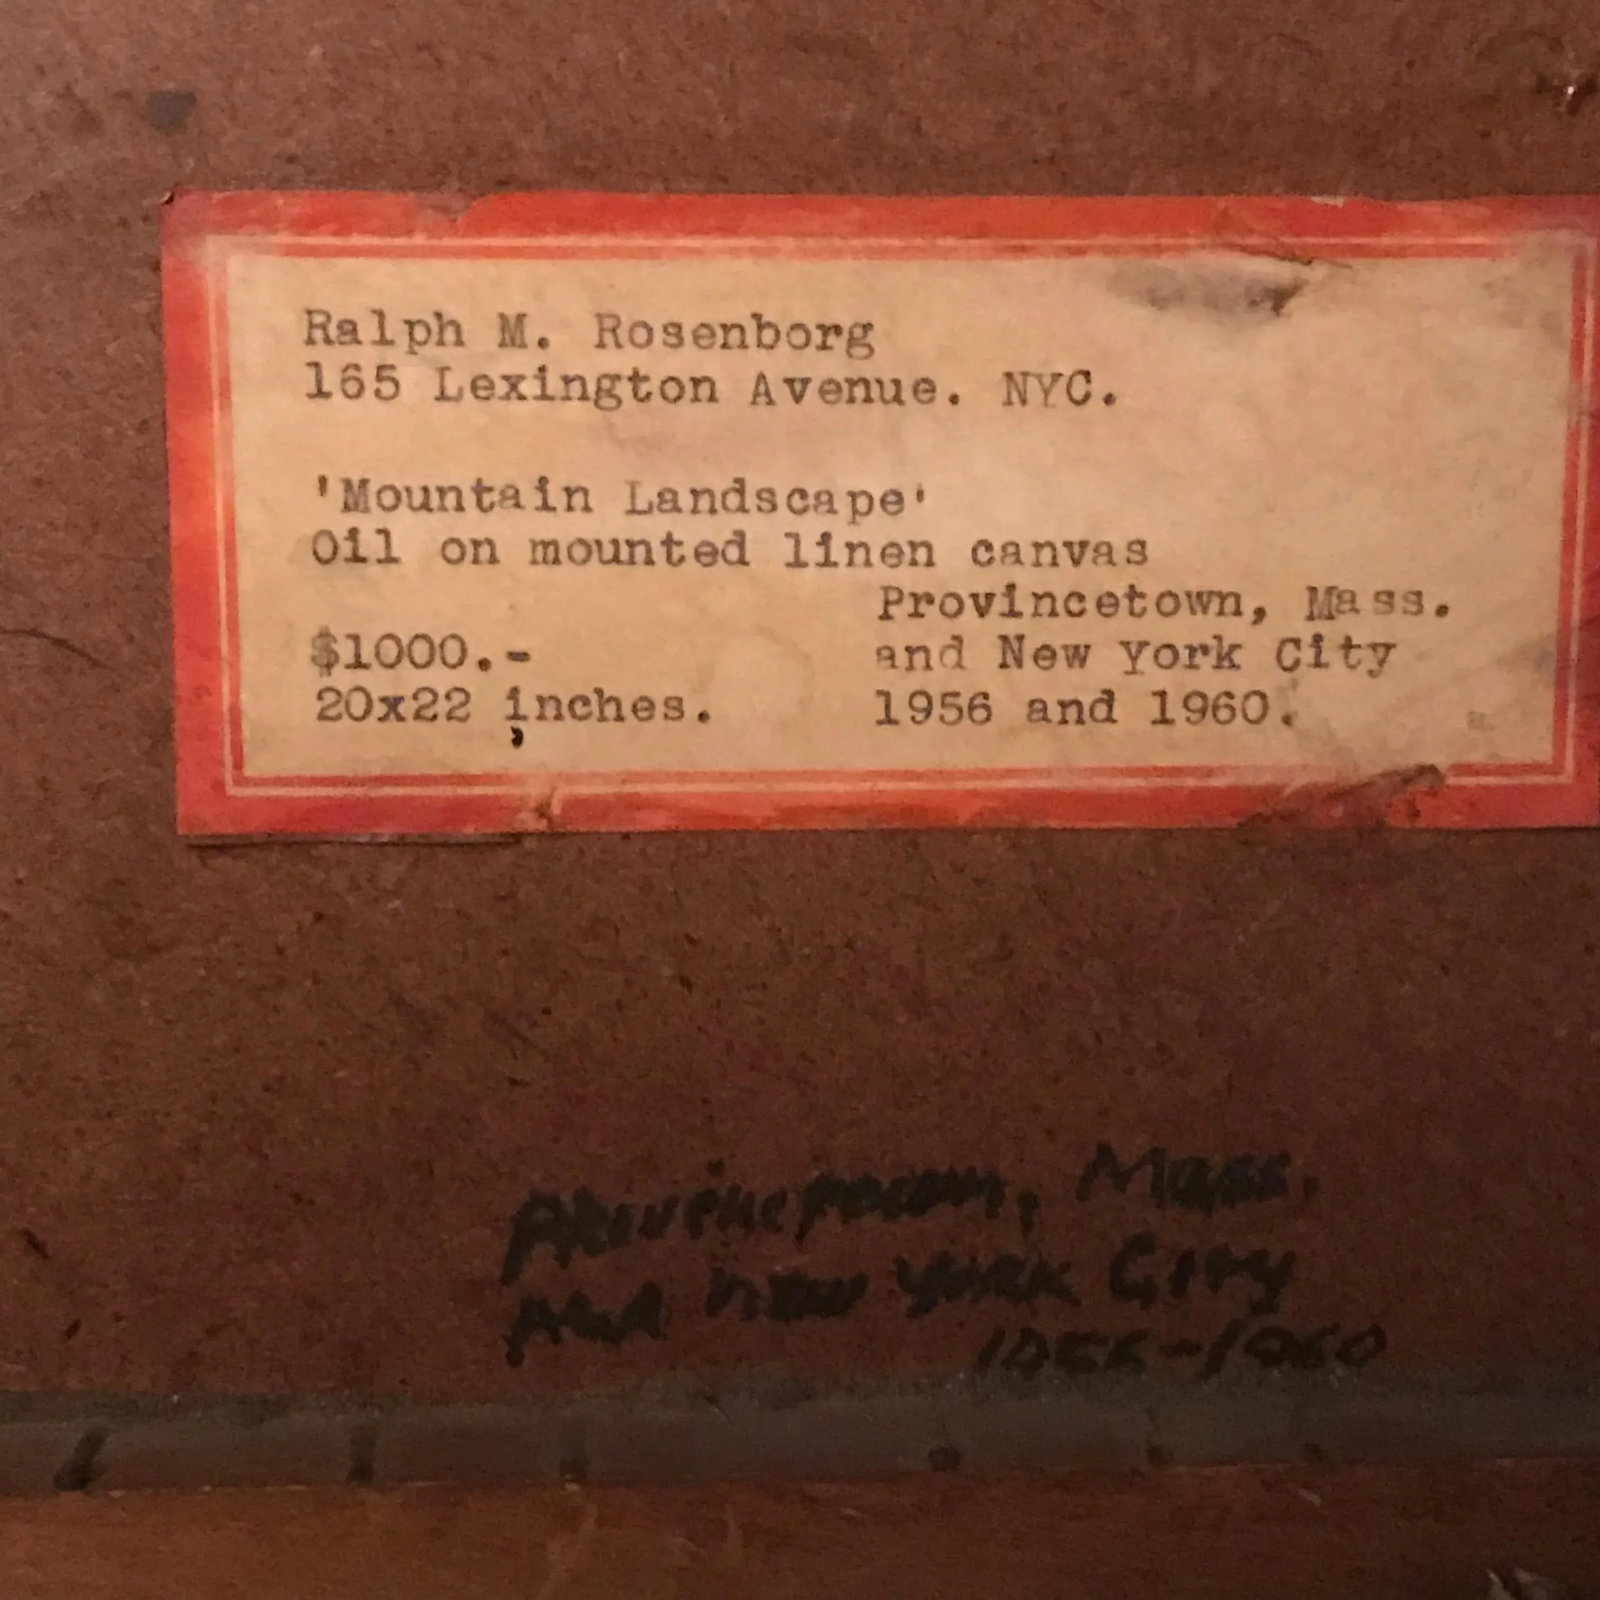 Ralph M. Rosenborg
165 Lexington Avenue. NYC.
'Mountain Landscape'
Oil on mounted linen canvas
Provincetown, Mass.
$1000.- and New York City
20x22 inches. 1956 and 1960.
Provincetown, Mass.
And New York City
1956-1960